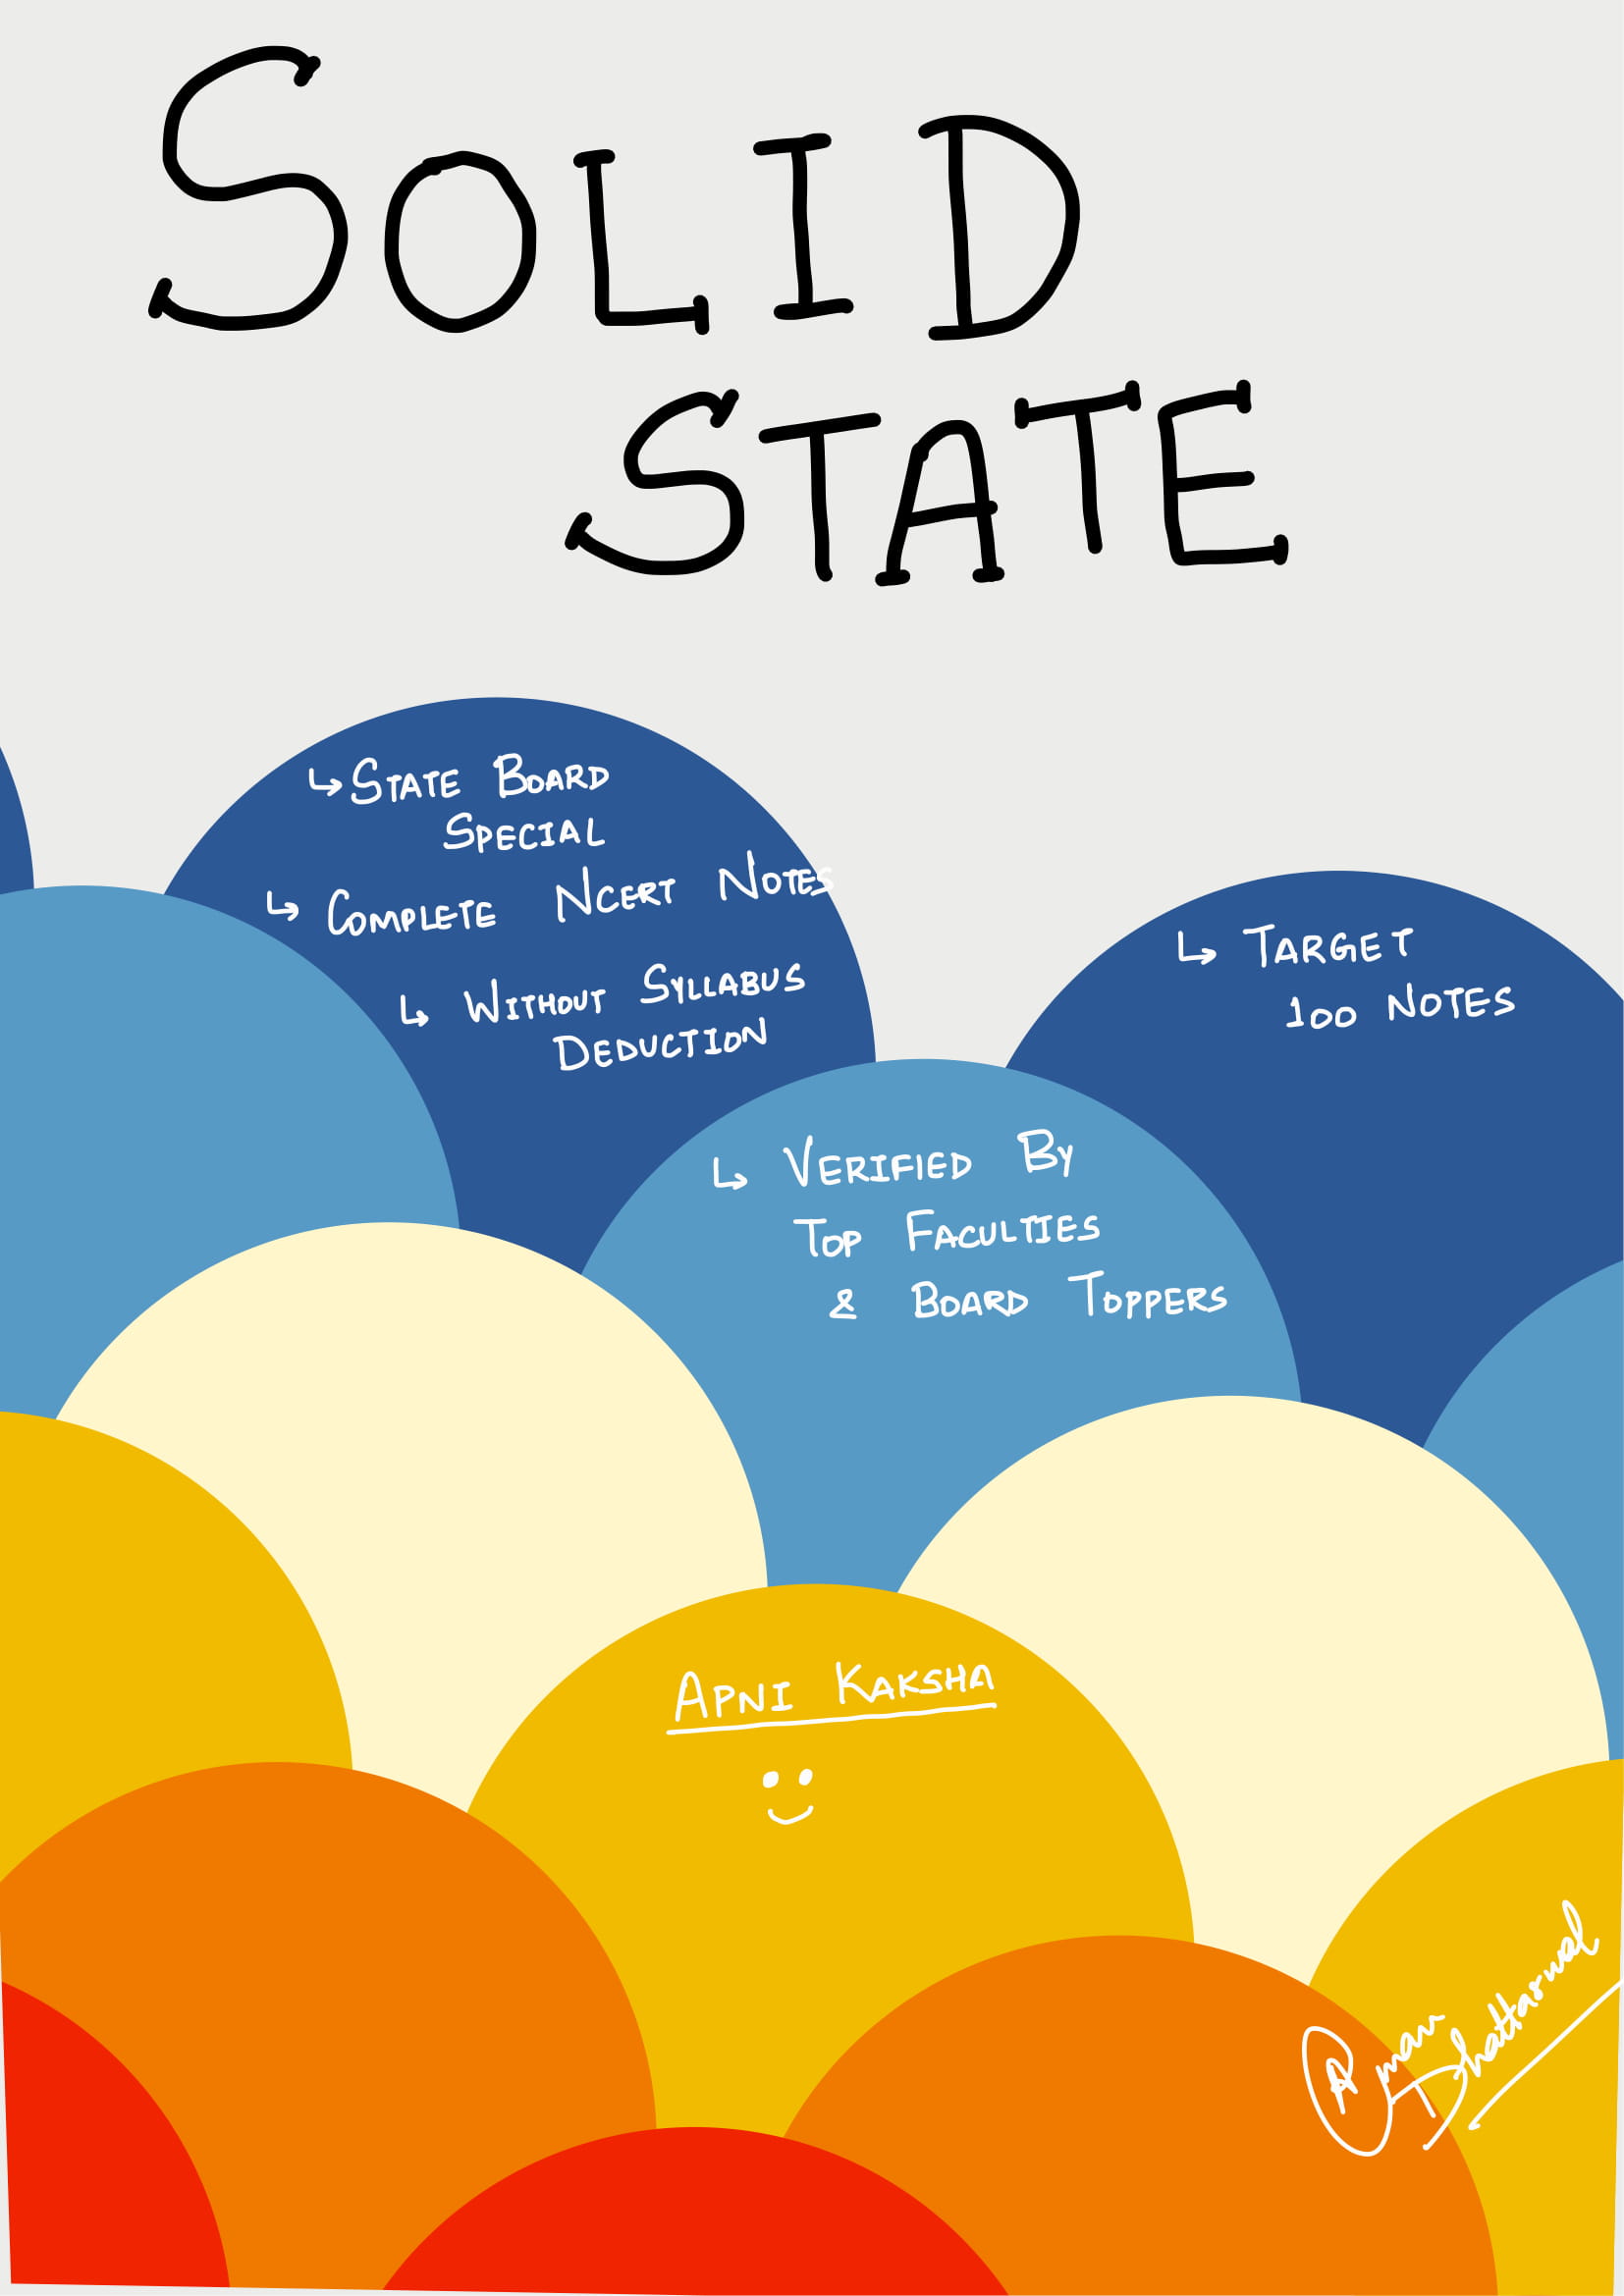 SOLID
STATE
↳ STATE BOARD
SPECIAL
↳ COMPLETE NCERT NOTES
↳ WITHOUT SYLLABUS
DEDUCTION
↳ TARGET
100 NOTES
↳ VERIFIED BY
TOP FACULTIES
& BOARD TOPPERS
APNI KAKSHA
Aman Dhattarwal